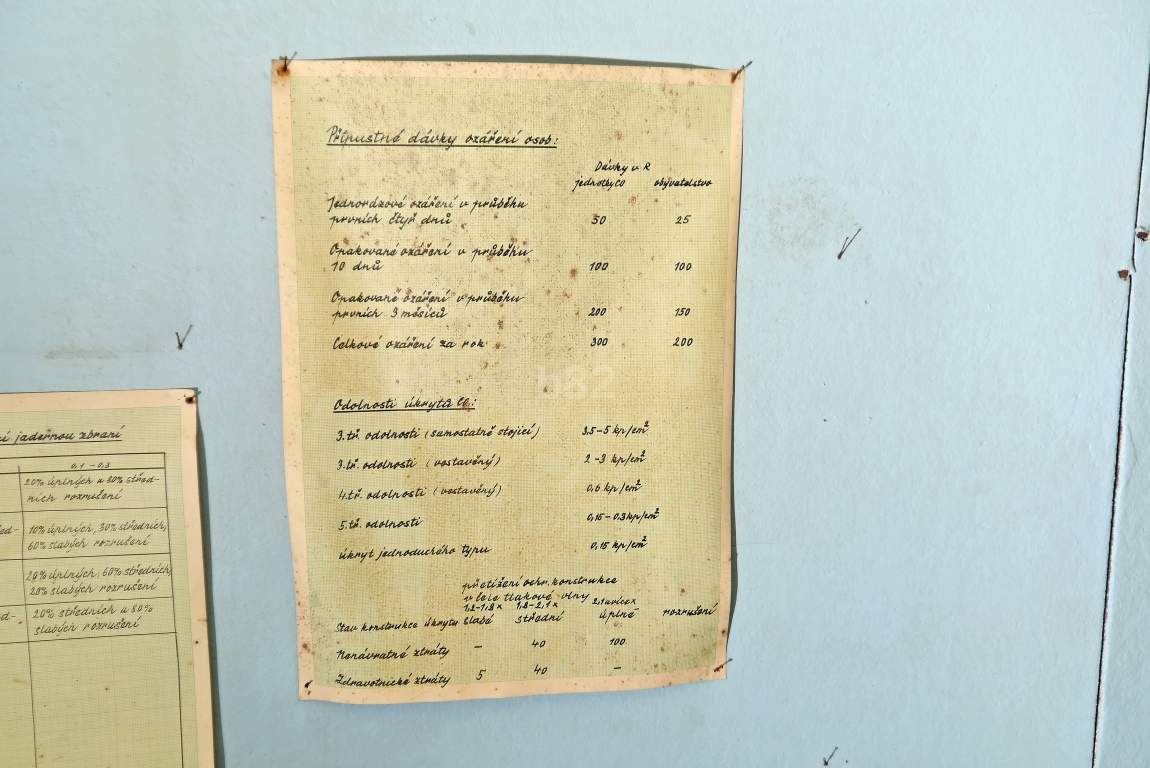 Přípustné dávky ozáření osob:
Dávky v R
jednotky CO obyvatelstvo
Jednorázové ozáření v průběhu
prvních čtyř dnů 50 25
Opakované ozáření v průběhu
10 dnů 100 100
Opakované ozáření v průběhu
prvních 3 měsíců 200 150
Celkové ozáření za rok 300 200
Odolnosti úkrytů CO:
3.tř. odolnosti (samostatně stojící) 3,5-5 kp/cm²
3.tř. odolnosti (vostavěný) 2-3 kp/cm²
4.tř. odolnosti (vostavěný) 0,6 kp/cm²
5.tř. odolnosti 0,15-0,3 kp/cm²
úkryt jednoduchého typu 0,15 kp/cm²
přetížení ochr. konstrukce
v čele tlakové vlny
1,2-1,8x 1,8-2,1x 2,1 a více x
Stav konstrukce úkrytu slabé střední úplné rozrušení
Nenávratné ztráty - 40 100
Zdravotnické ztráty 5 40 -
ní jadernou zbraní
0,1-0,3
20% úplných a 80% střed-
ních rozrušení
10% úplných, 30% středních,
60% slabých rozrušení
20% úplných, 60% středních,
20% slabých rozrušení
20% středních a 80%
slabých rozrušení